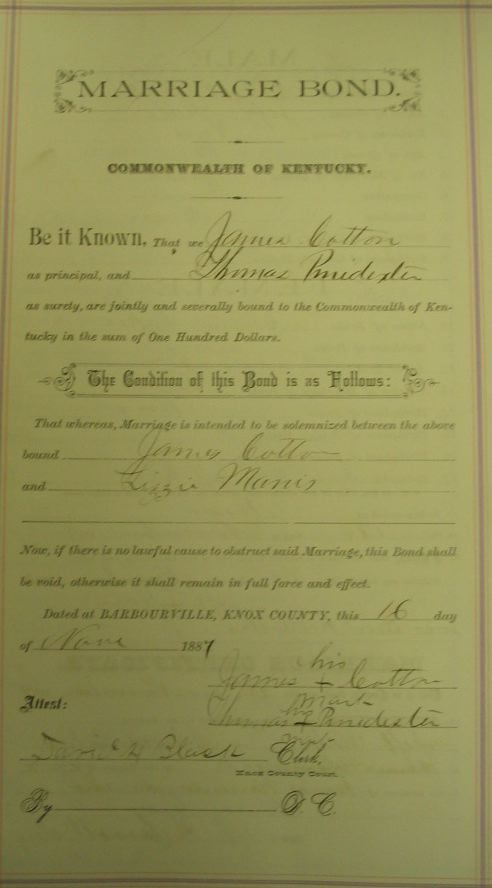 MARRIAGE BOND.
COMMONWEALTH OF KENTUCKY.
Be it Known, That we James Cotton
as principal, and Thomas Pnidexter
as surety, are jointly and severally bound to the Commonwealth of Ken-
tucky in the sum of One Hundred Dollars.
The Condition of this Bond is as Follows:
That whereas, Marriage is intended to be solemnized between the above
bound James Cotton
and Lizzie Manis
Now, if there is no lawful cause to obstruct said Marriage, this Bond shall
be void, otherwise it shall remain in full force and effect.
Dated at BARBOURVILLE, KNOX COUNTY, this 16 day
of 1887
his
James + Cotton
mark
Attest:
his
Thomas + Pnidexter
mark
David H Black Clerk,
Knox County Court.
By D. C.